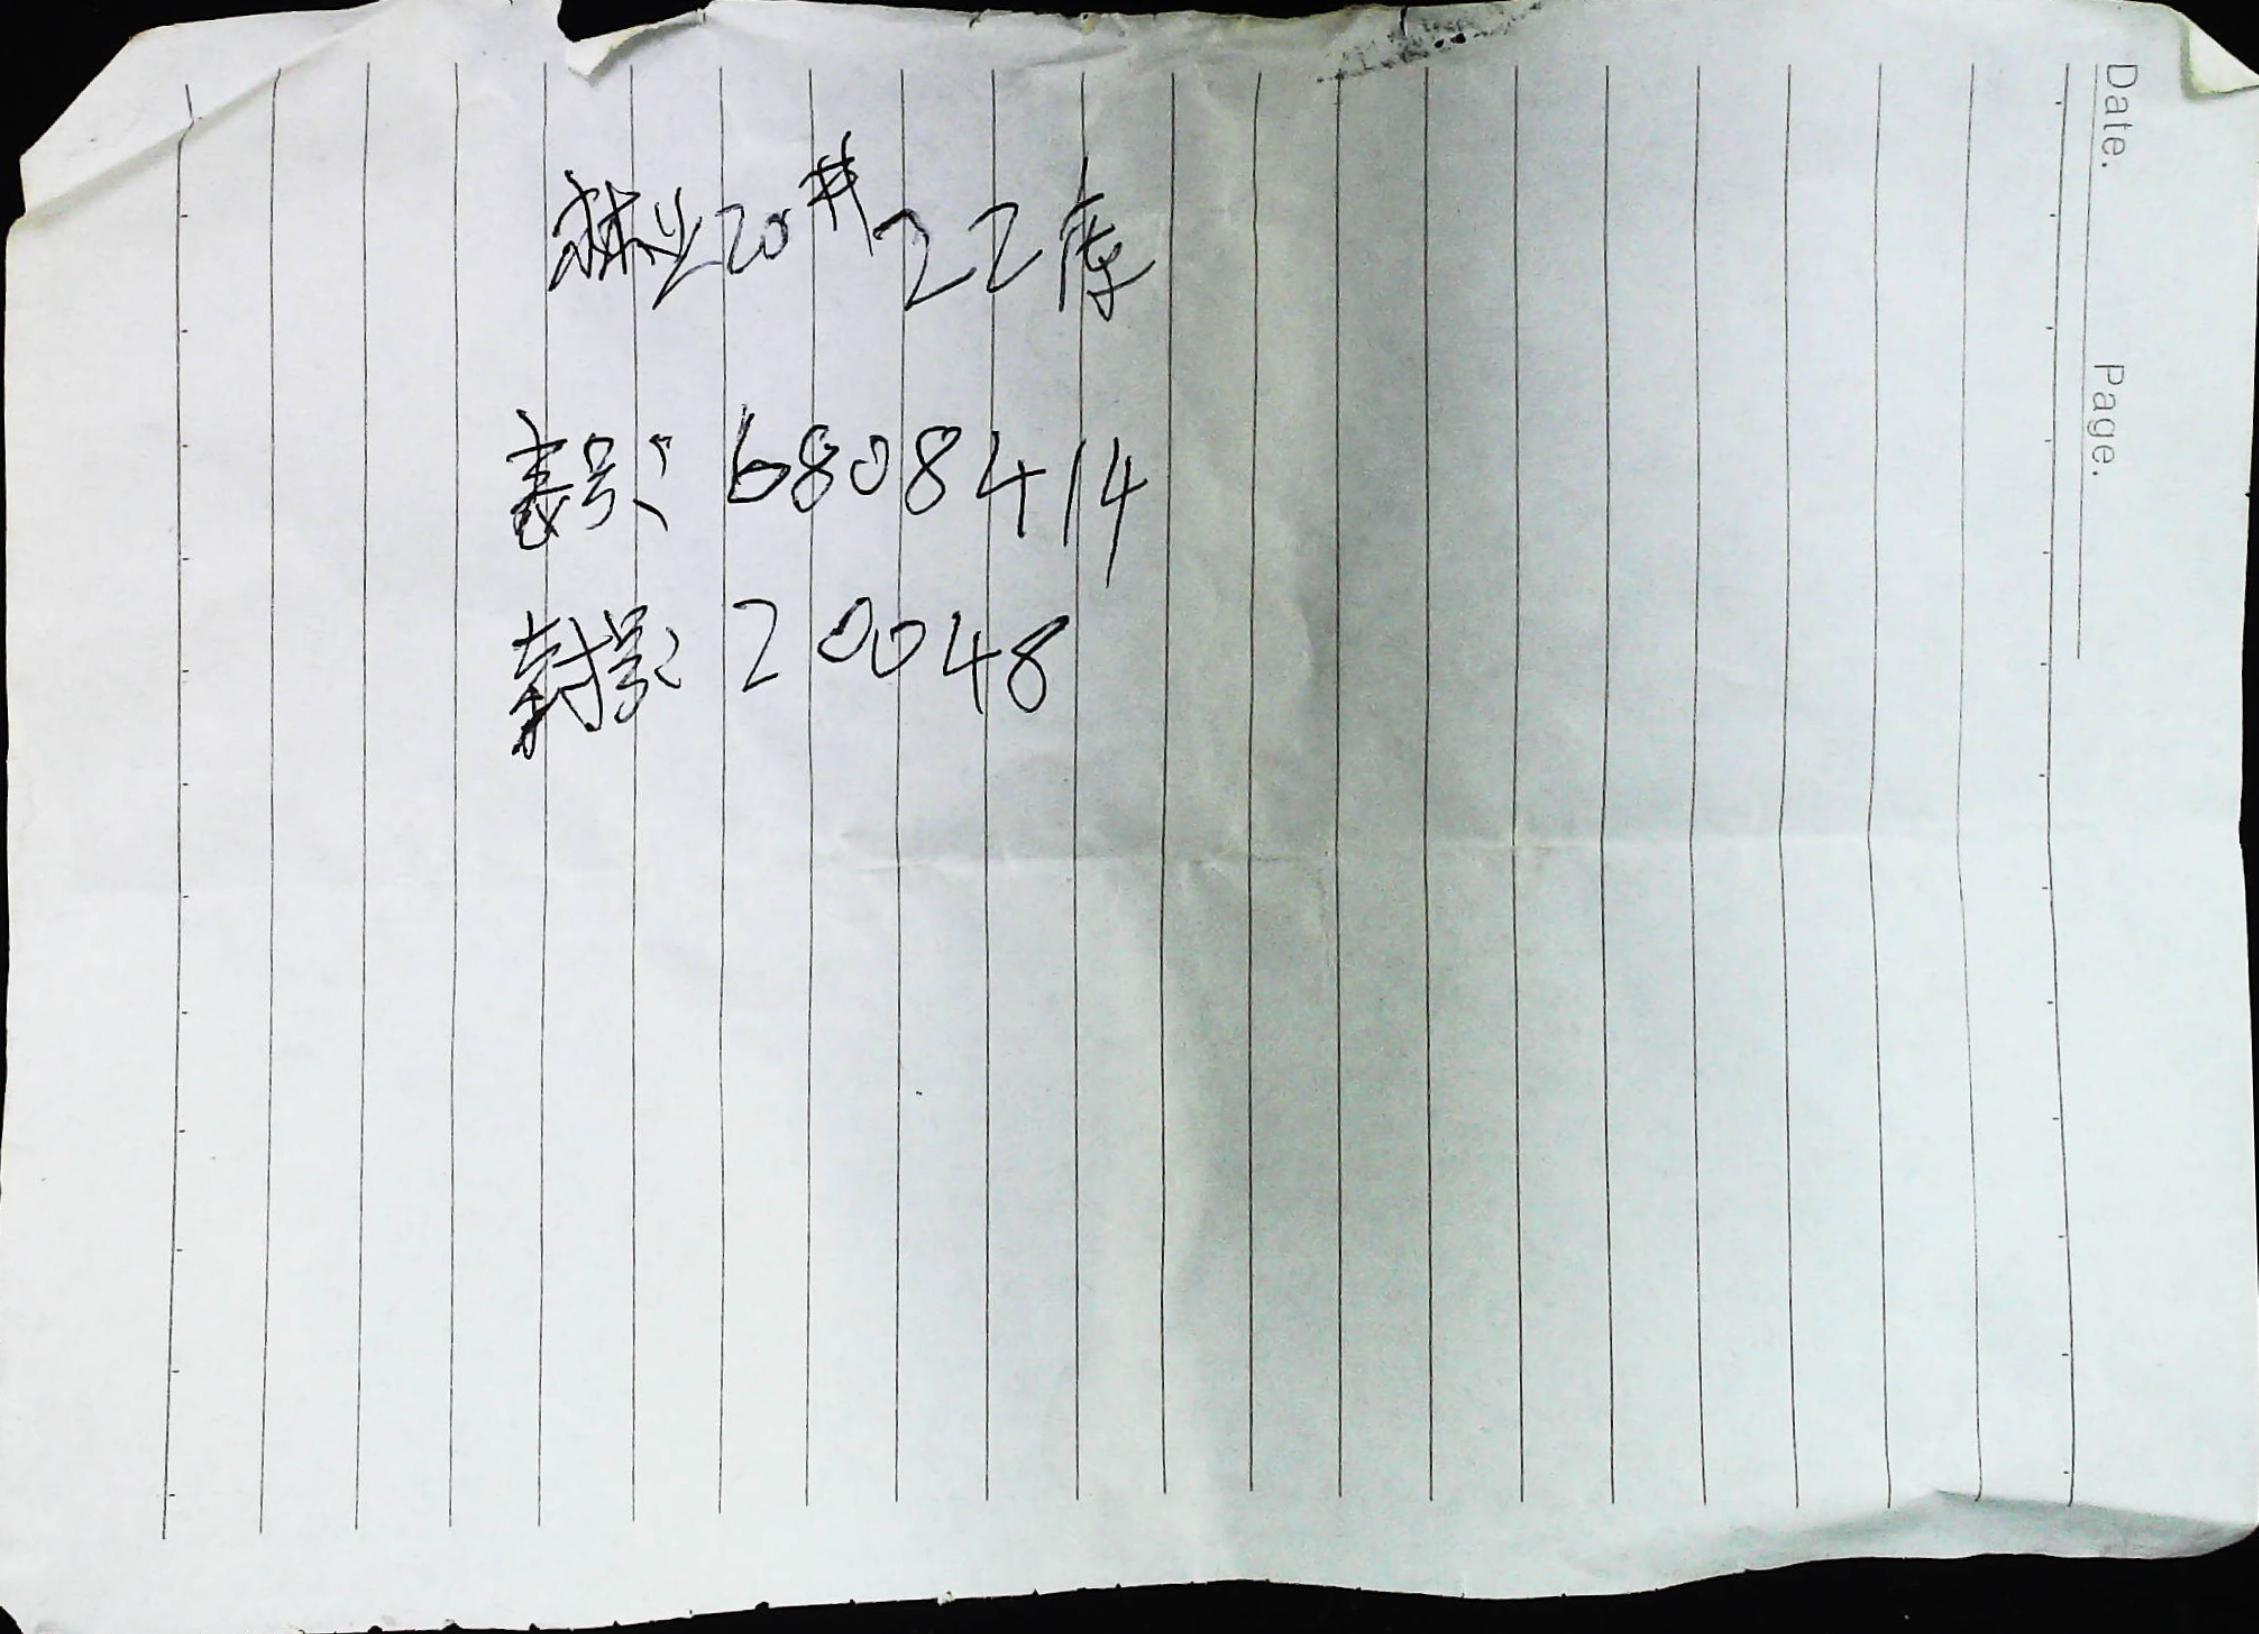 林业20#22库
表号: 6808414
封号: 20048
Date.
Page.